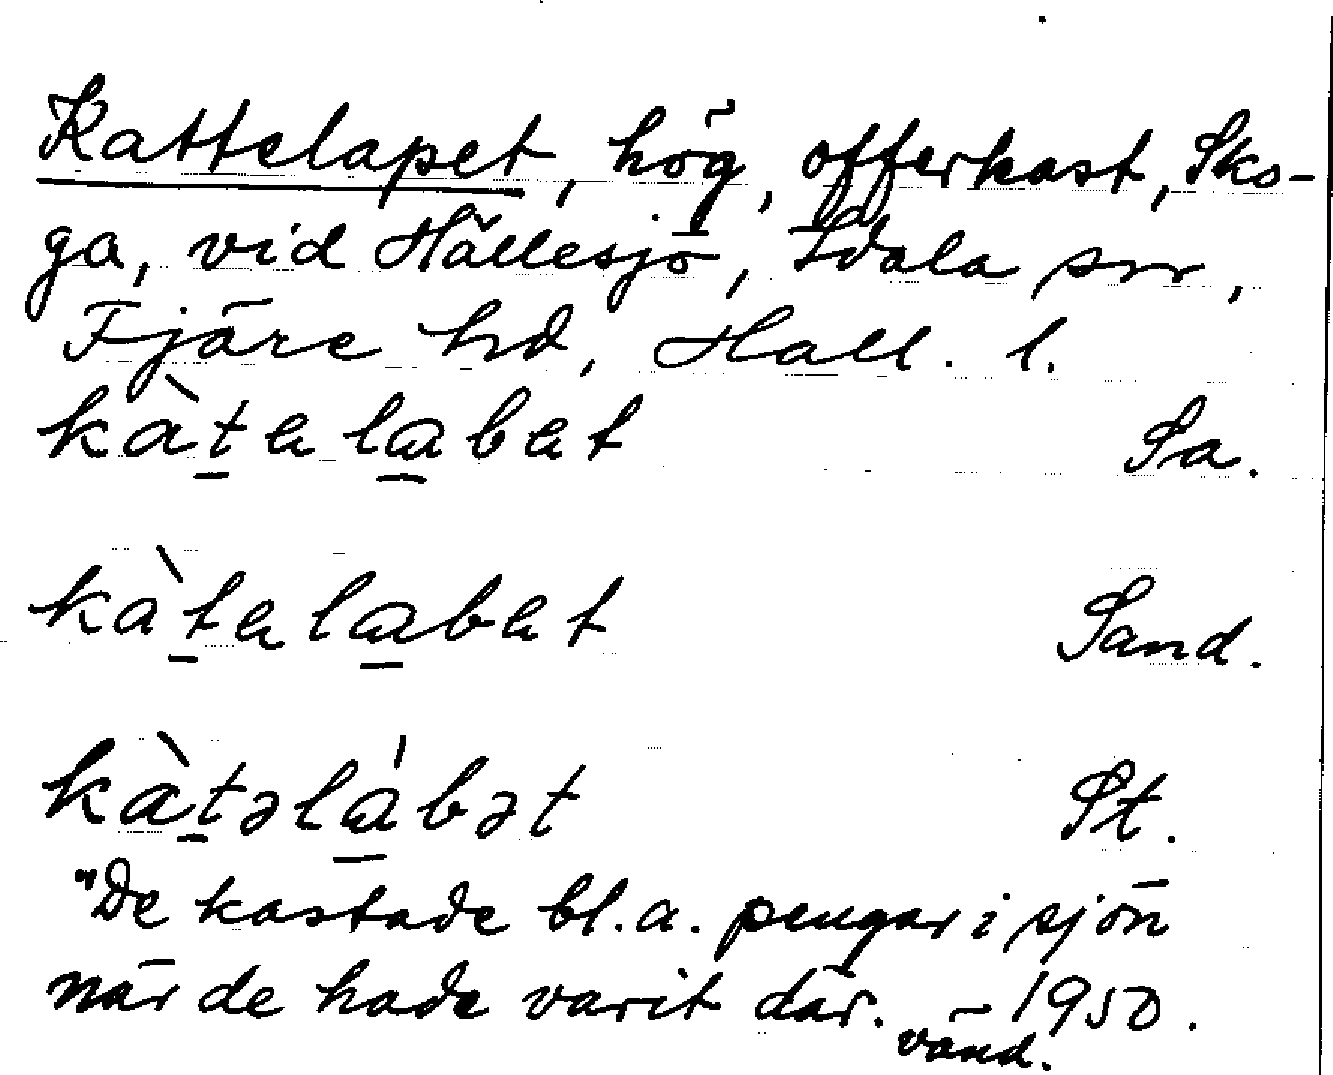 Kattelapet, hög, offerkast, Sko-
ga, vid Hällesjö, Idala sn,
Fjäre hd, Hall. l.
kàt̠ela̠bet Sa.
kàt̠ela̠bet Sand.
kàt̠əlá̠bət St.
"De kastade bl.a. pengar i sjön
när de hade varit där. – 1950.
vänd.